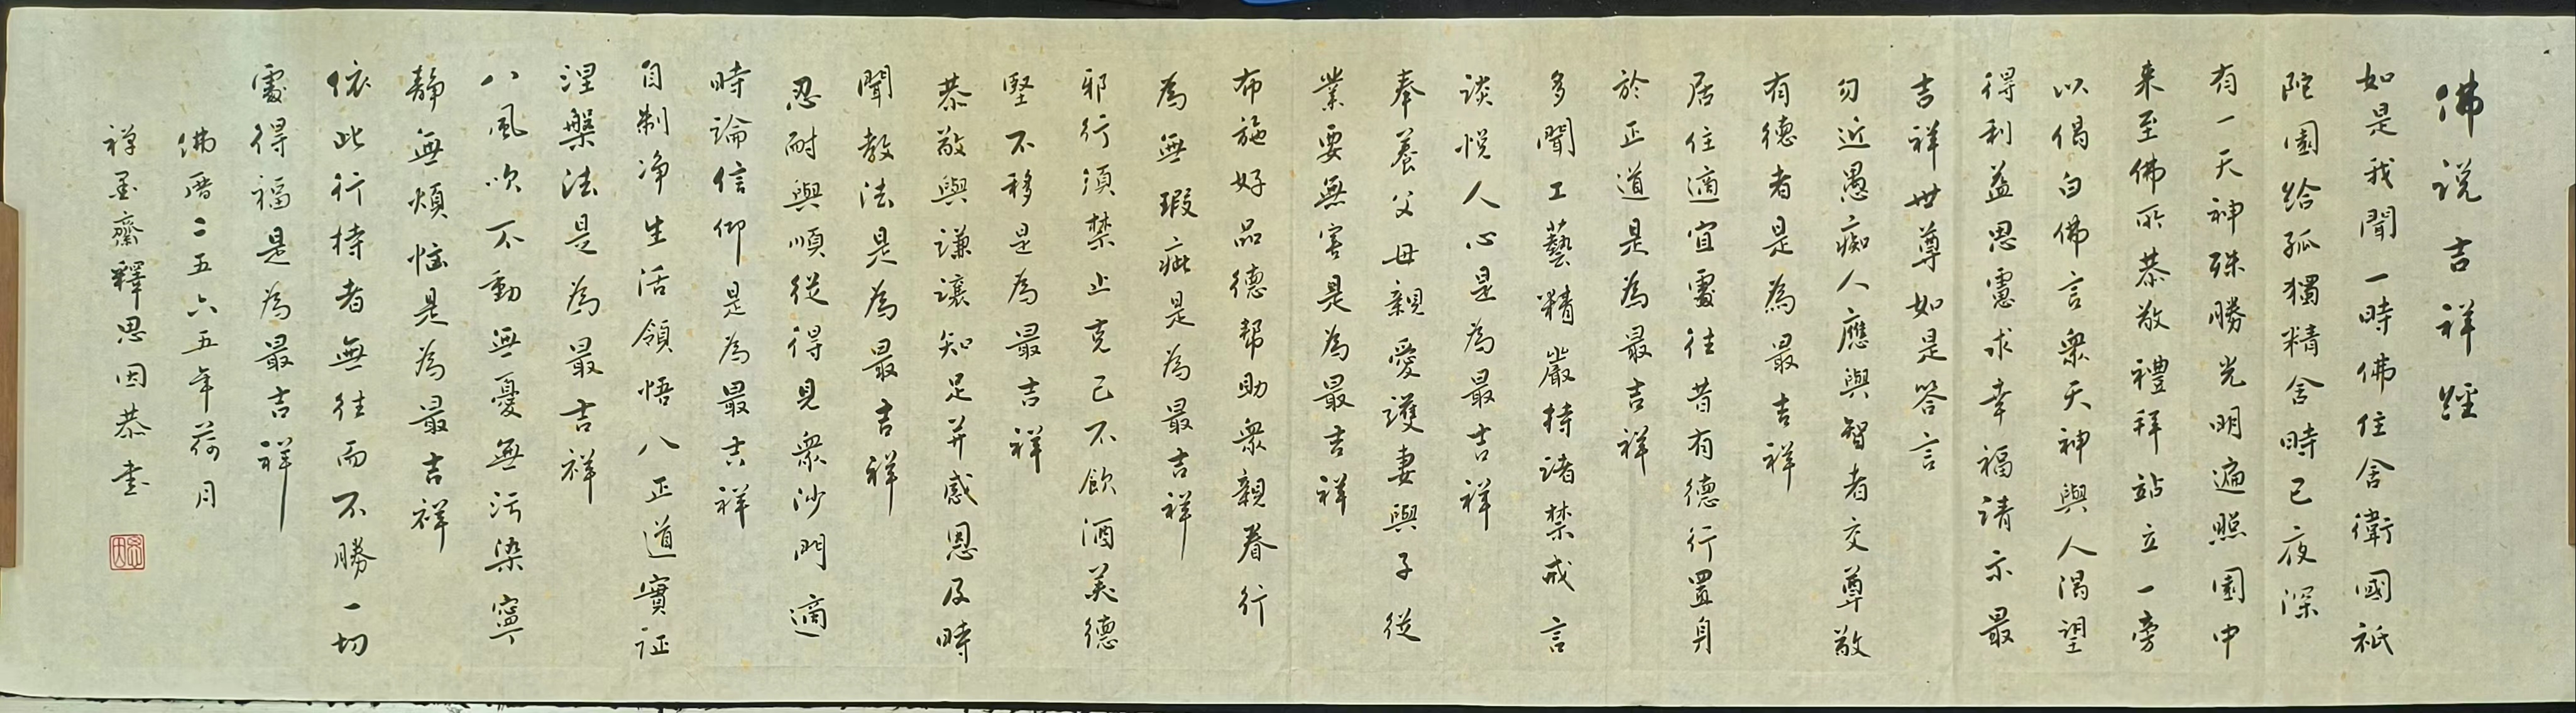 佛说吉祥經
如是我聞一時佛住舍衛國祇
陀園給孤獨精舍時已夜深
有一天神殊勝光明遍照園中
来至佛所恭敬禮拜站立一旁
以偈白佛言衆天神與人渴望
得利益思慮求幸福请示最
吉祥世尊如是答言
勿近愚痴人應與智者交尊敬
有德者是為最吉祥
居住適宜處往昔有德行置身
於正道是為最吉祥
多聞工藝精嚴持诸禁戒言
谈悦人心是為最吉祥
奉養父母親愛護妻與子從
業要無害是為最吉祥
布施好品德帮助衆親眷行
為無瑕疵是為最吉祥
邪行須禁止克己不飲酒美德
堅不移是為最吉祥
恭敬與谦讓知足并感恩及時
聞教法是為最吉祥
忍耐與順從得見衆沙門適
時論信仰是為最吉祥
自制净生活領悟八正道實证
涅槃法是為最吉祥
八風吹不動無憂無污染寧
静無煩惱是為最吉祥
依此行持者無往而不勝一切
處得福是為最吉祥
佛曆二五六五年荷月
禅墨齋釋思因恭書
思因